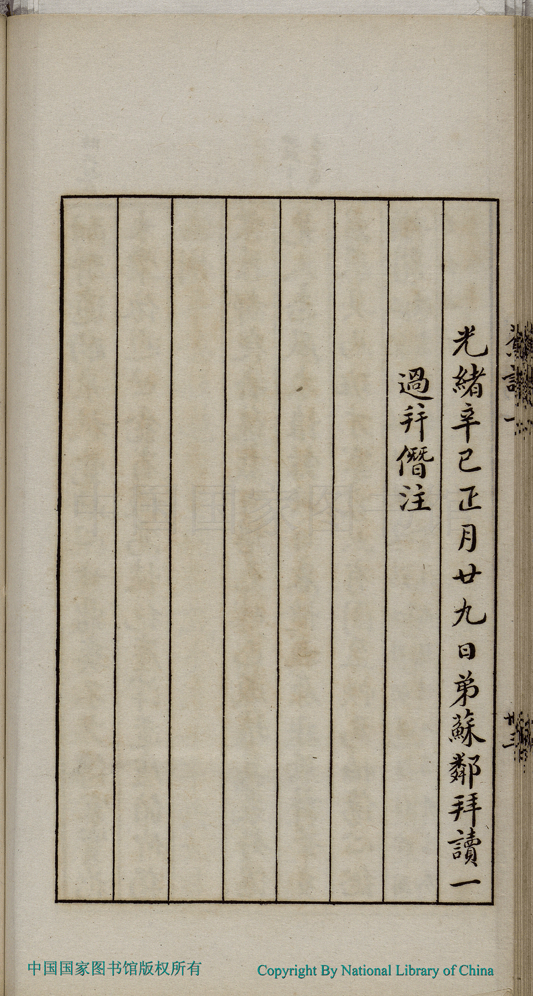 光緒辛巳正月廿九日弟蘇鄰拜讀一
過幷僭注
中国国家图书馆版权所有
Copyright By National Library of China